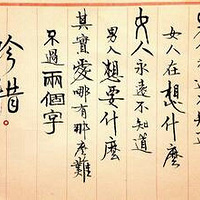 女人在想什麼
女人永遠不知道
男人想要什麼
其實愛哪有那麼難
不過兩個字
珍惜